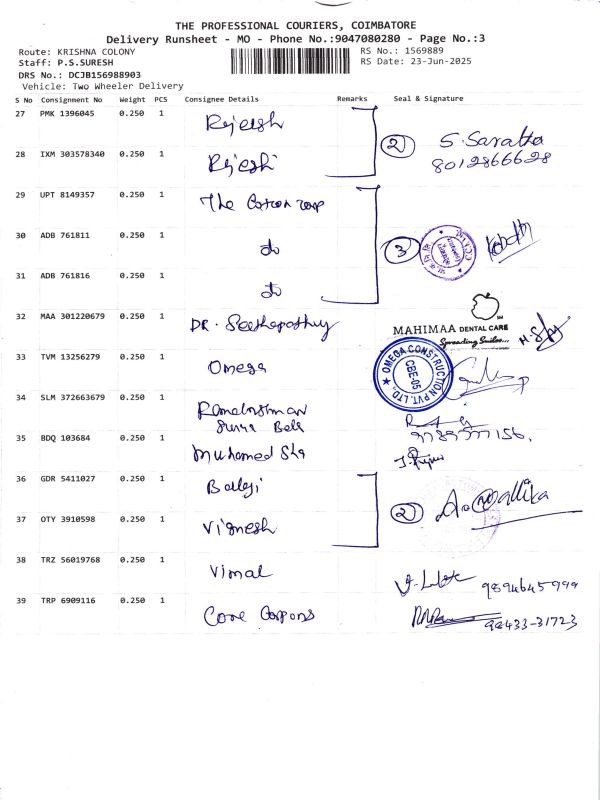 THE PROFESSIONAL COURIERS, COIMBATORE
Delivery Runsheet - MO - Phone No.:9047080280 - Page No.:3
Route: KRISHNA COLONY RS No.: 1569889
Staff: P.S.SURESH RS Date: 23-Jun-2025
DRS No.: DCJB156988903
Vehicle: Two Wheeler Delivery
S No Consignment No Weight PCS Consignee Details Remarks Seal & Signature
27 PMK 1396045 0.250 1 Rajesh
28 IXM 303578340 0.250 1 Rajesh 2 S. Saratha
8012866628
29 UPT 8149357 0.250 1 The Cotton
30 ADB 761811 0.250 1 do 3
31 ADB 761816 0.250 1 do
32 MAA 301220679 0.250 1 DR. Seethapathy MAHIMAA DENTAL CARE
Spreading Smiles...
33 TVM 13256279 0.250 1 Omega OMEGA CONSTRUCTION PVT. LTD. CBE-05
34 SLM 372663679 0.250 1
35 BDQ 103684 0.250 1 Muhamed
36 GDR 5411027 0.250 1 Balaji
37 OTY 3910598 0.250 1 Vignesh 2
38 TRZ 56019768 0.250 1 Vimal 9894645999
39 TRP 6909116 0.250 1 Core 98433-31723